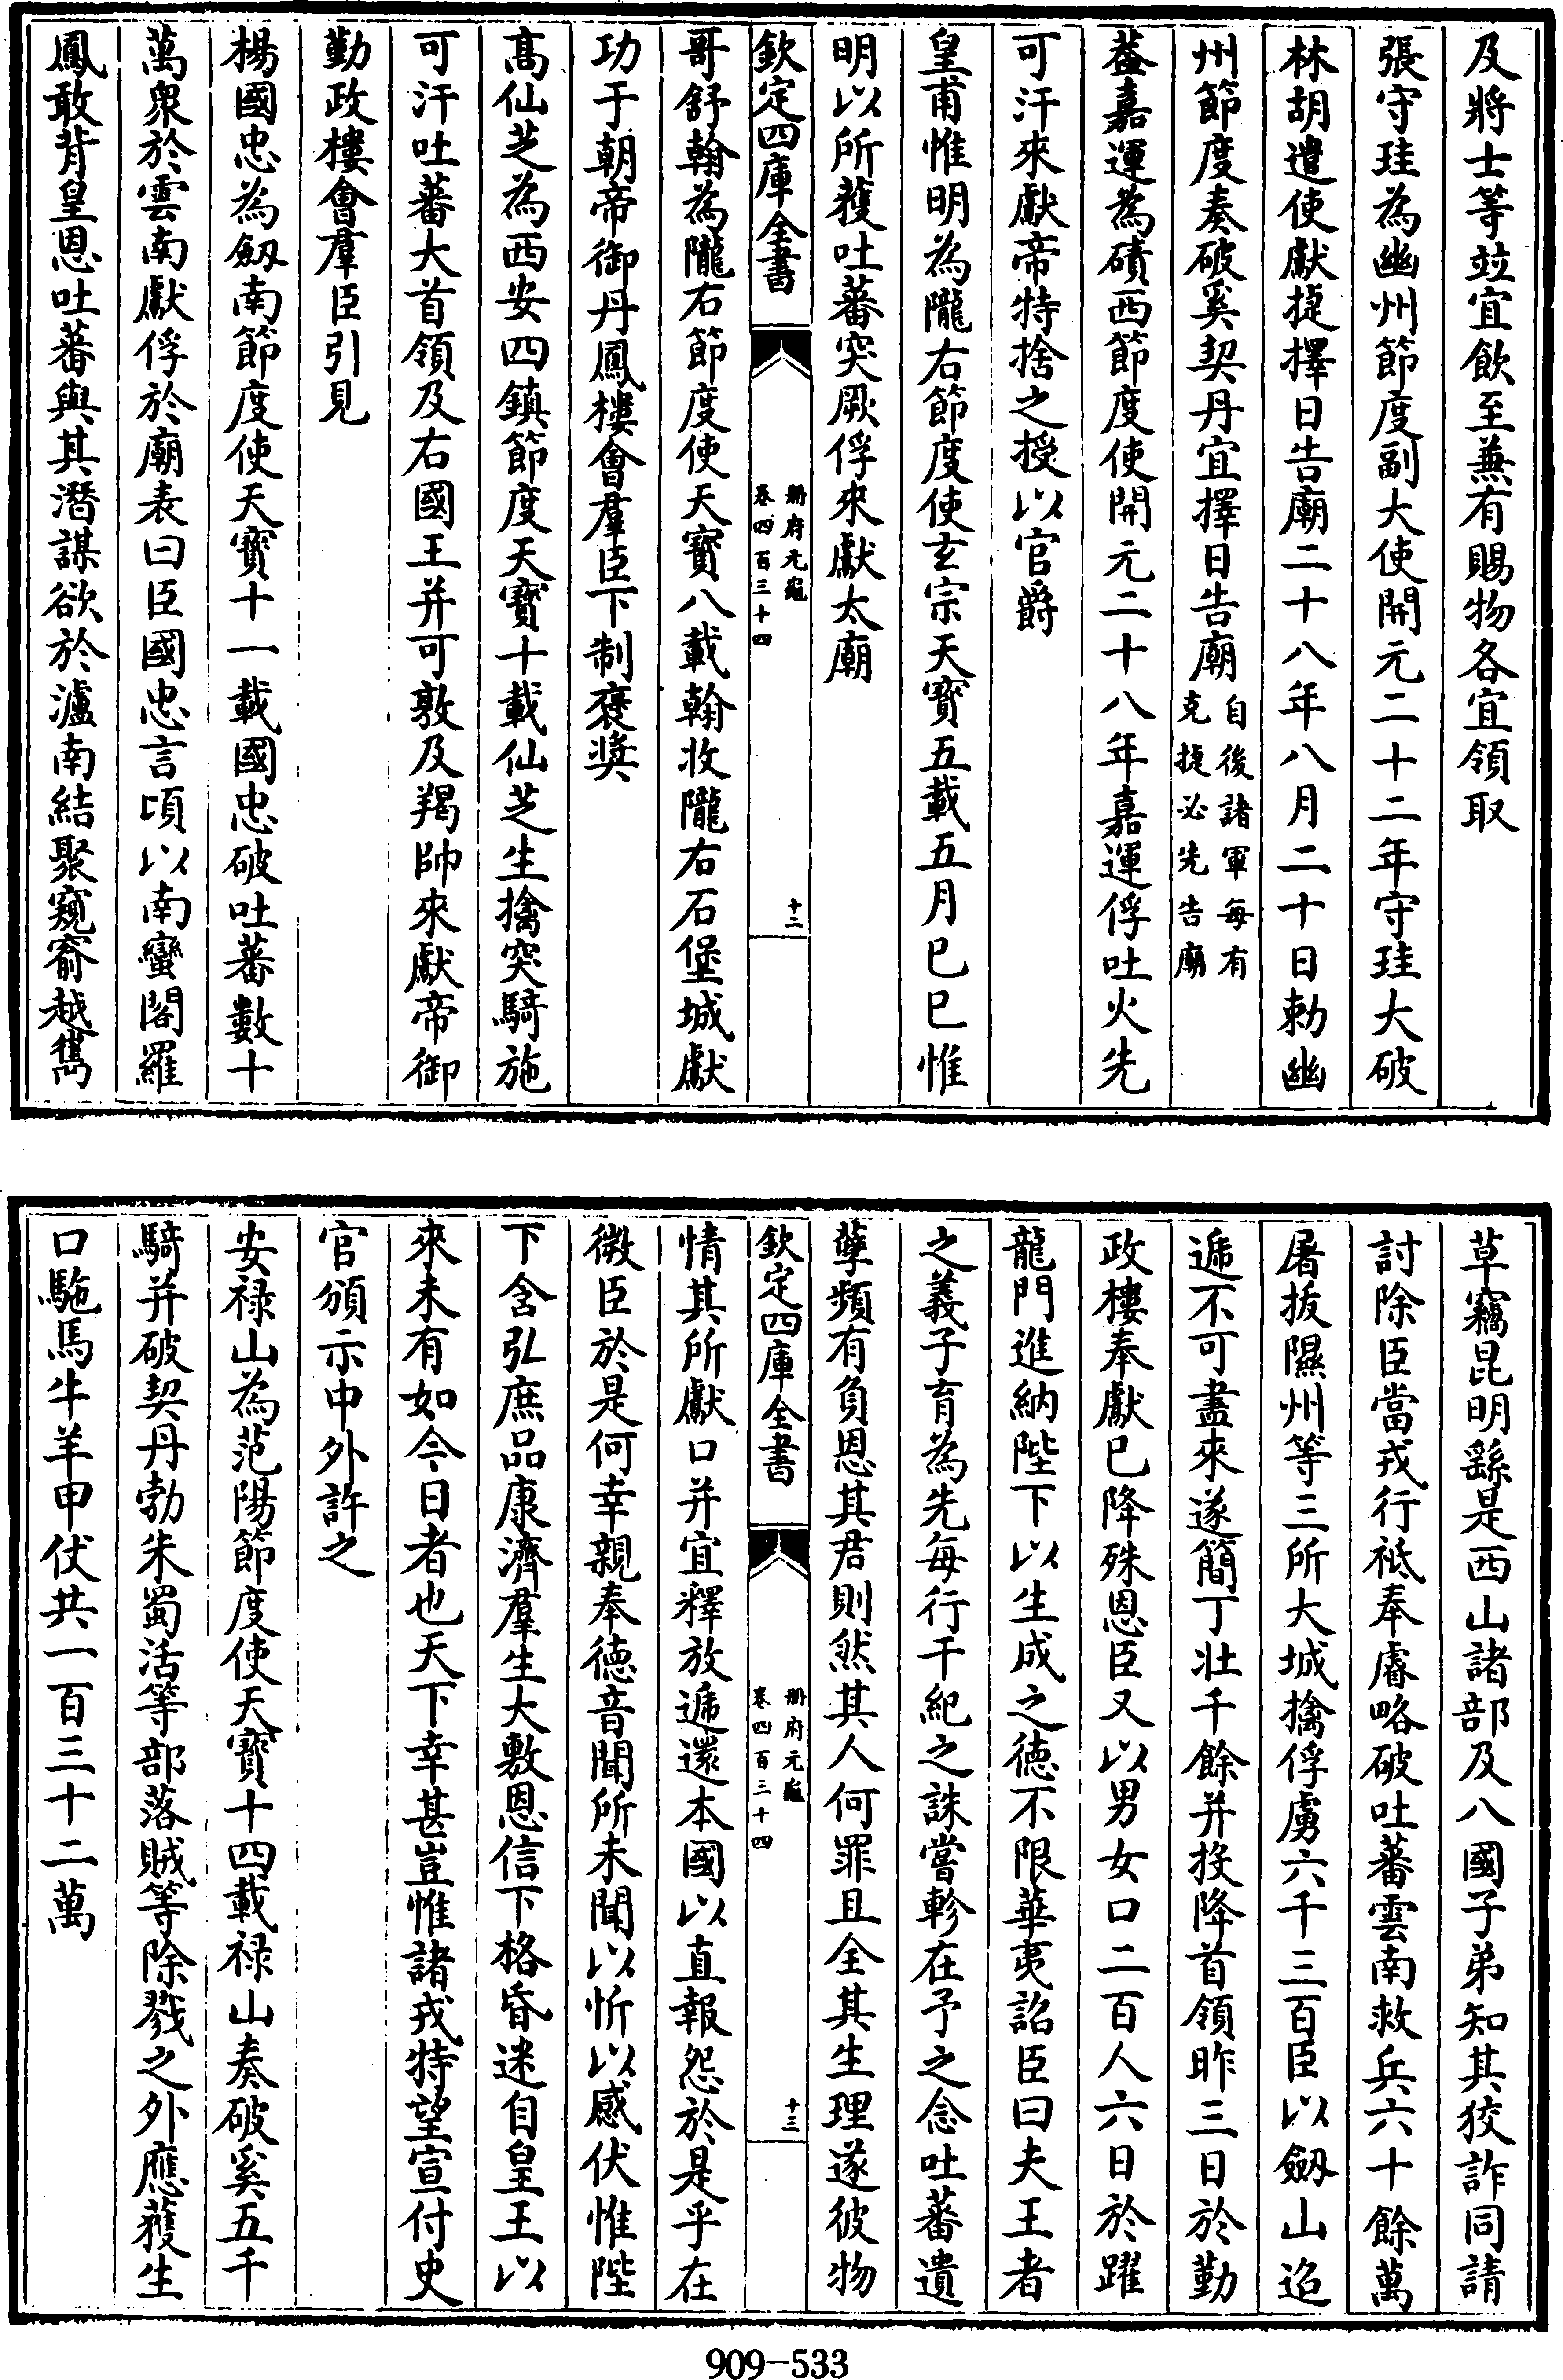 及將士等竝宜飲至兼有賜物各宜領取
張守珪為幽州節度副大使開元二十二年守珪大破
林胡遣使獻捷擇日告廟二十八年八月二十日勅幽
州節度奏破奚契丹宜擇日告廟自後諸軍每有克捷必先告廟
葢嘉運為磧西節度使開元二十八年嘉運俘吐火先
可汗來獻帝特捨之授以官爵
皇甫惟明為隴右節度使玄宗天寳五載五月已已惟
明以所獲吐蕃突厥俘來獻太廟
欽定四庫全書
册府元龜
卷四百三十四
十二
哥舒翰為隴右節度使天寳八載翰收隴右石堡城獻
功于朝帝御丹鳳樓會羣臣下制襃奬
髙仙芝為西安四鎮節度天寳十載仙芝生擒突騎施
可汗吐蕃大首領及右國王并可敦及羯帥來獻帝御
勤政樓會羣臣引見
楊國忠為劔南節度使天寳十一載國忠破吐蕃數十
萬衆於雲南獻俘於廟表曰臣國忠言頃以南蠻閣羅
鳳敢背皇恩吐蕃與其潛謀欲於瀘南結聚窺窬越嶲
草竊昆明繇是西山諸部及八國子弟知其狡詐同請
討除臣當戎行祗奉睿略破吐蕃雲南救兵六十餘萬
屠拔隰州等三所大城擒俘虜六千三百臣以劔山迢
遞不可盡來遂簡丁壯千餘并投降首領昨三日於勤
政樓奉獻已降殊恩臣又以男女口二百人六日於躍
龍門進納陛下以生成之徳不限華夷詔臣曰夫王者
之義子育為先每行干紀之誅嘗軫在予之念吐蕃遺
孽頻有負恩其君則然其人何罪且全其生理遂彼物
欽定四庫全書
册府元龜
卷四百三十四
十三
情其所獻口并宜釋放遞還本國以直報怨於是乎在
微臣於是何幸親奉徳音聞所未聞以忻以感伏惟陛
下含弘庶品康濟羣生大敷恩信下格昏迷自皇王以
來未有如今日者也天下幸甚豈惟諸戎特望宣付史
官頒示中外許之
安禄山為范陽節度使天寳十四載禄山奏破奚五千
騎并破契丹勃朱蜀活等部落賊等除戮之外應獲生
口駞馬牛羊甲仗共一百三十二萬
909-533